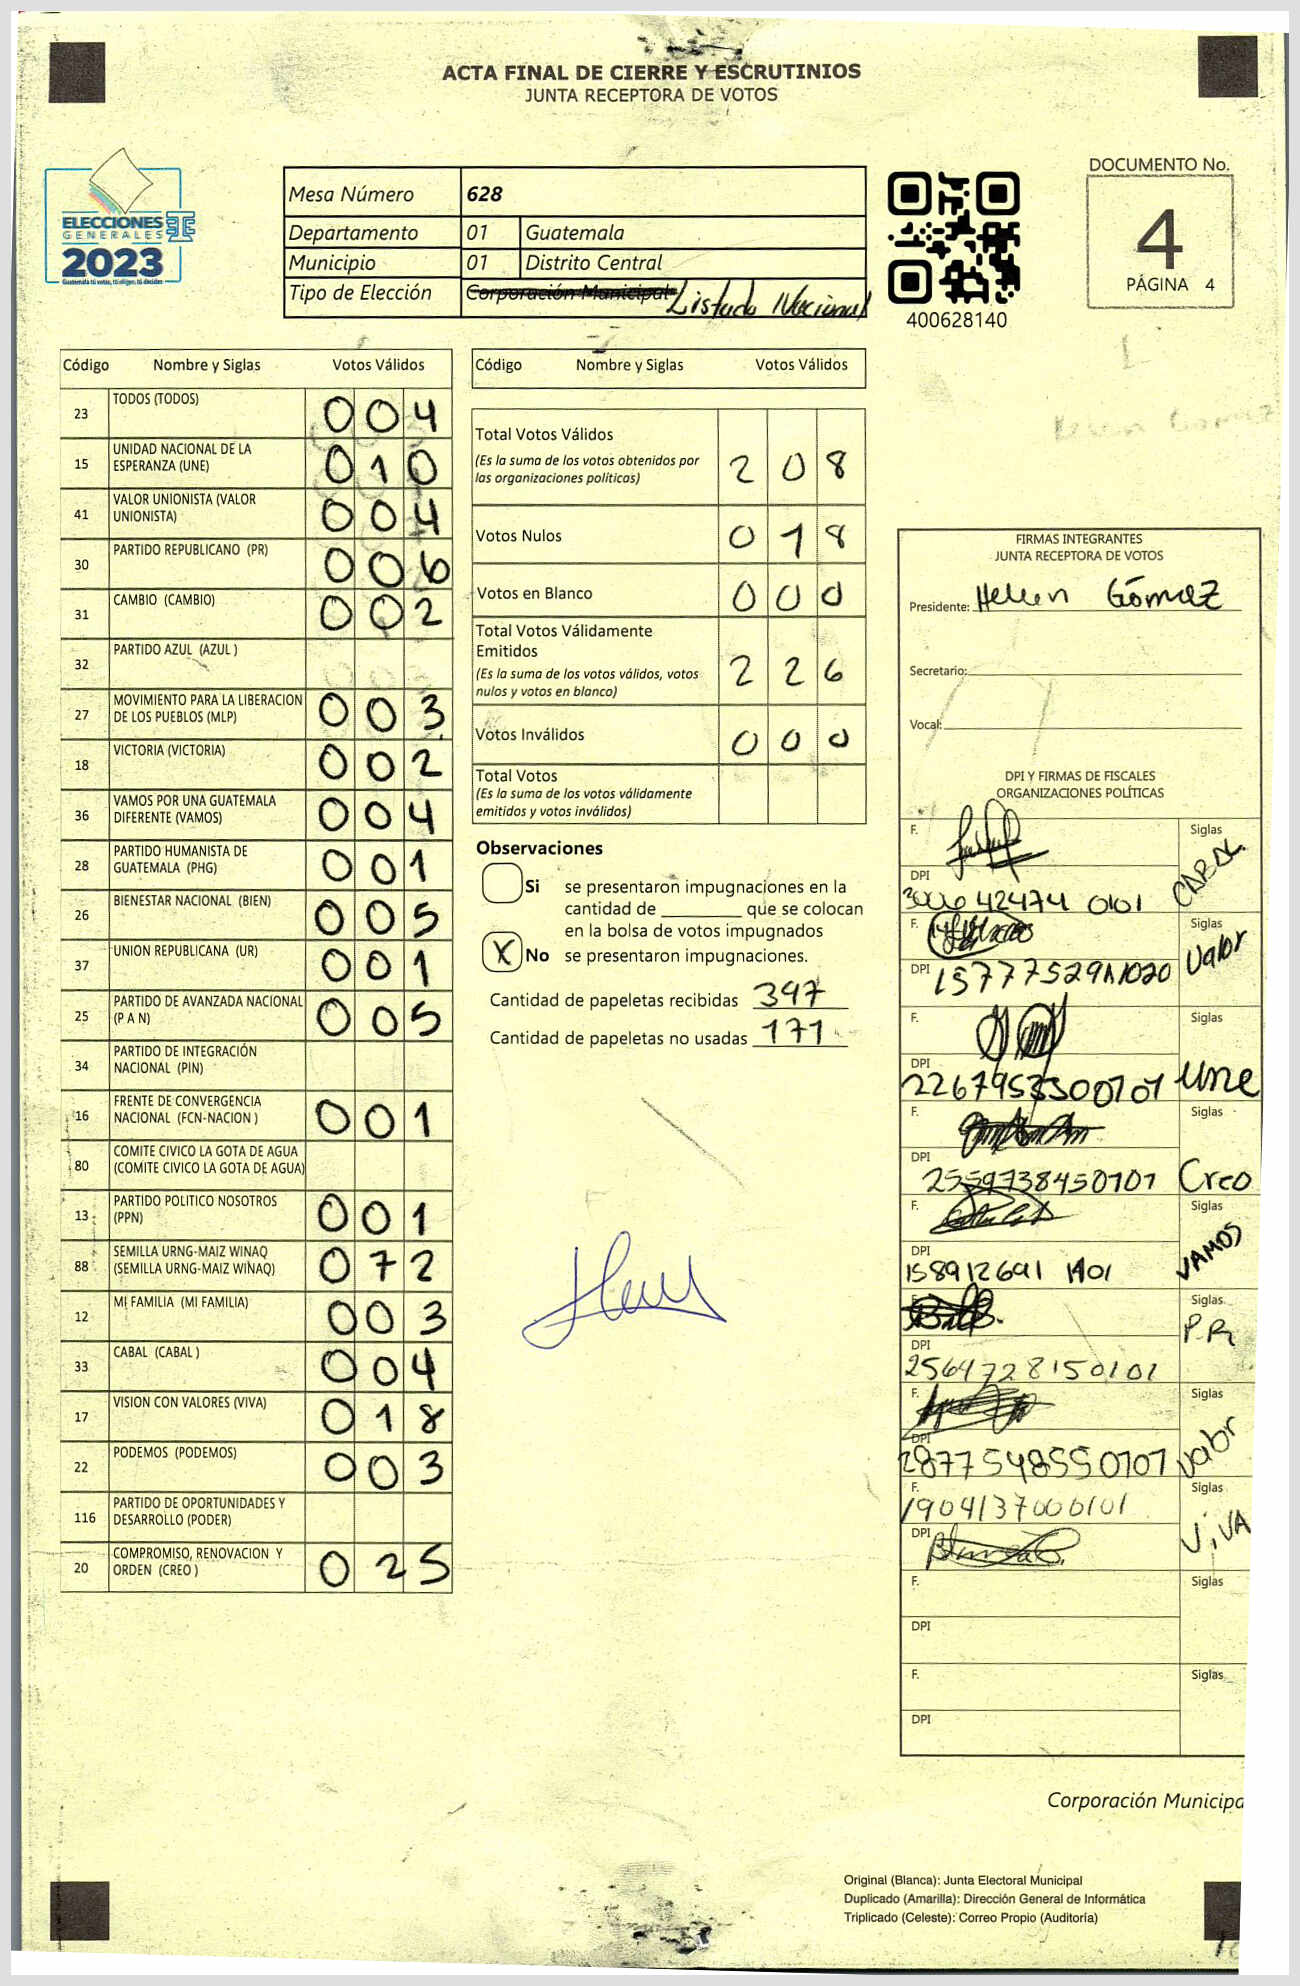 ACTA FINAL DE CIERRE Y ESCRUTINIOS
JUNTA RECEPTORA DE VOTOS
ELECCIONES
GENERALES
2023
Guatemala tú votas, tú eliges, tú decides
Mesa Número 628
Departamento 01 Guatemala
Municipio 01 Distrito Central
Tipo de Elección Corporación Municipal Listado Nacional
400628140
DOCUMENTO No.
4
PÁGINA 4
Código Nombre y Siglas Votos Válidos
23 TODOS (TODOS) 0 0 4
15 UNIDAD NACIONAL DE LA ESPERANZA (UNE) 0 1 0
41 VALOR UNIONISTA (VALOR UNIONISTA) 0 0 4
30 PARTIDO REPUBLICANO (PR) 0 0 6
31 CAMBIO (CAMBIO) 0 0 2
32 PARTIDO AZUL (AZUL )
27 MOVIMIENTO PARA LA LIBERACION DE LOS PUEBLOS (MLP) 0 0 3
18 VICTORIA (VICTORIA) 0 0 2
36 VAMOS POR UNA GUATEMALA DIFERENTE (VAMOS) 0 0 4
28 PARTIDO HUMANISTA DE GUATEMALA (PHG) 0 0 1
26 BIENESTAR NACIONAL (BIEN) 0 0 5
37 UNION REPUBLICANA (UR) 0 0 1
25 PARTIDO DE AVANZADA NACIONAL (P A N) 0 0 5
34 PARTIDO DE INTEGRACIÓN NACIONAL (PIN)
16 FRENTE DE CONVERGENCIA NACIONAL (FCN-NACION ) 0 0 1
80 COMITE CIVICO LA GOTA DE AGUA (COMITE CIVICO LA GOTA DE AGUA)
13 PARTIDO POLITICO NOSOTROS (PPN) 0 0 1
88 SEMILLA URNG-MAIZ WINAQ (SEMILLA URNG-MAIZ WINAQ) 0 7 2
12 MI FAMILIA (MI FAMILIA) 0 0 3
33 CABAL (CABAL ) 0 0 4
17 VISION CON VALORES (VIVA) 0 1 8
22 PODEMOS (PODEMOS) 0 0 3
116 PARTIDO DE OPORTUNIDADES Y DESARROLLO (PODER)
20 COMPROMISO, RENOVACION Y ORDEN (CREO ) 0 2 5
Código Nombre y Siglas Votos Válidos
Total Votos Válidos
(Es la suma de los votos obtenidos por
las organizaciones políticas) 2 0 8
Votos Nulos 0 1 8
Votos en Blanco 0 0 0
Total Votos Válidamente
Emitidos
(Es la suma de los votos válidos, votos
nulos y votos en blanco) 2 2 6
Votos Inválidos 0 0 0
Total Votos
(Es la suma de los votos válidamente
emitidos y votos inválidos)
Observaciones
Si se presentaron impugnaciones en la
cantidad de ________ que se colocan
en la bolsa de votos impugnados
X No se presentaron impugnaciones.
Cantidad de papeletas recibidas 397
Cantidad de papeletas no usadas 171
FIRMAS INTEGRANTES
JUNTA RECEPTORA DE VOTOS
Presidente: Helen Gómez
Secretario:
Vocal:
DPI Y FIRMAS DE FISCALES
ORGANIZACIONES POLÍTICAS
F. Siglas
DPI 3006 42474 0101 CABAL
F. Siglas
DPI Valor
F. Siglas
DPI 2267953300101 Une
F. Siglas
DPI 2559738450101 Creo
F. Siglas
DPI 158912691 1401 VAMOS
F. Siglas
DPI 2564728150101 P.R
F. Siglas
DPI 2877548550101 Valor
F. Siglas
1904137000101
DPI ViVA
F. Siglas
DPI
F. Siglas
DPI
Corporación Municipa
Original (Blanca): Junta Electoral Municipal
Duplicado (Amarilla): Dirección General de Informática
Triplicado (Celeste): Correo Propio (Auditoría)